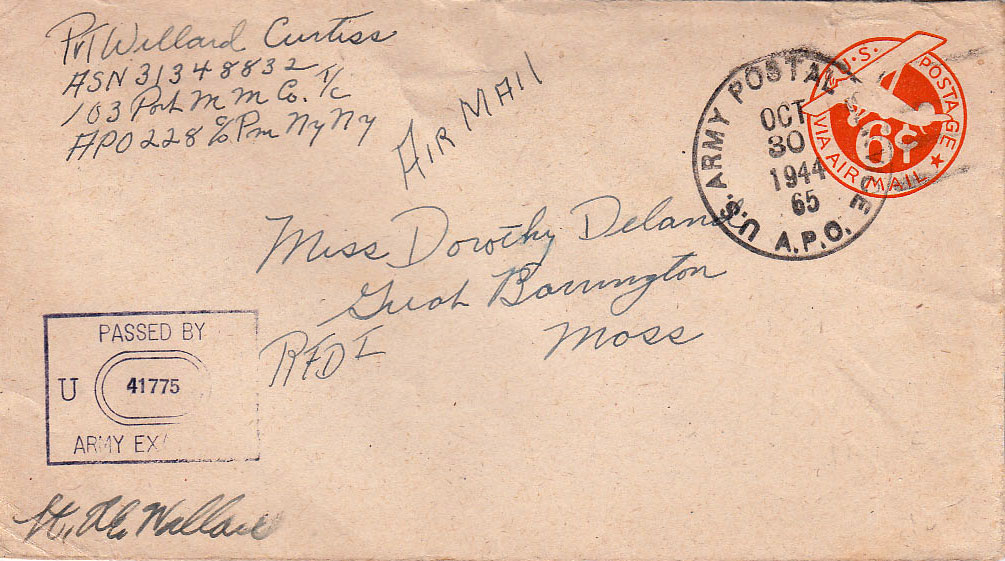 Pvt Willard Curtiss
ASN 31348832
103 Port M M Co. T/C
APO 228 % Pm Ny Ny
AIR MAIL
U.S. ARMY POSTAL
A.P.O.
OCT
30
1944
65
U.S. POSTAGE
6¢
VIA AIR MAIL
Miss Dorothy
Great Barrington
RFD 1
Mass
PASSED BY
U 41775
ARMY
Lt. Wallace